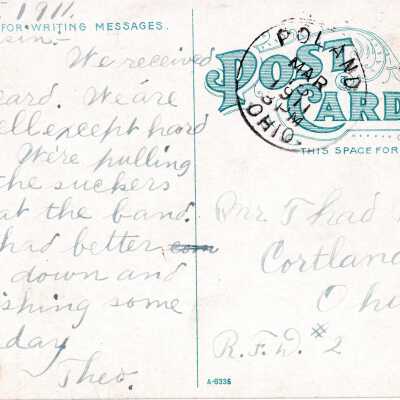 1911.
FOR WRITING MESSAGES.
sin:-
We received
eard. We are
ell except hard
We're pulling
the suckers
at the band.
had better com
down and
ishing some
day
Theo.
POST CARD
POLAND
MAR
1911
OHIO
THIS SPACE FOR
Mr Thad
Cortland
Ohi
R.F.D. #2
A-6336